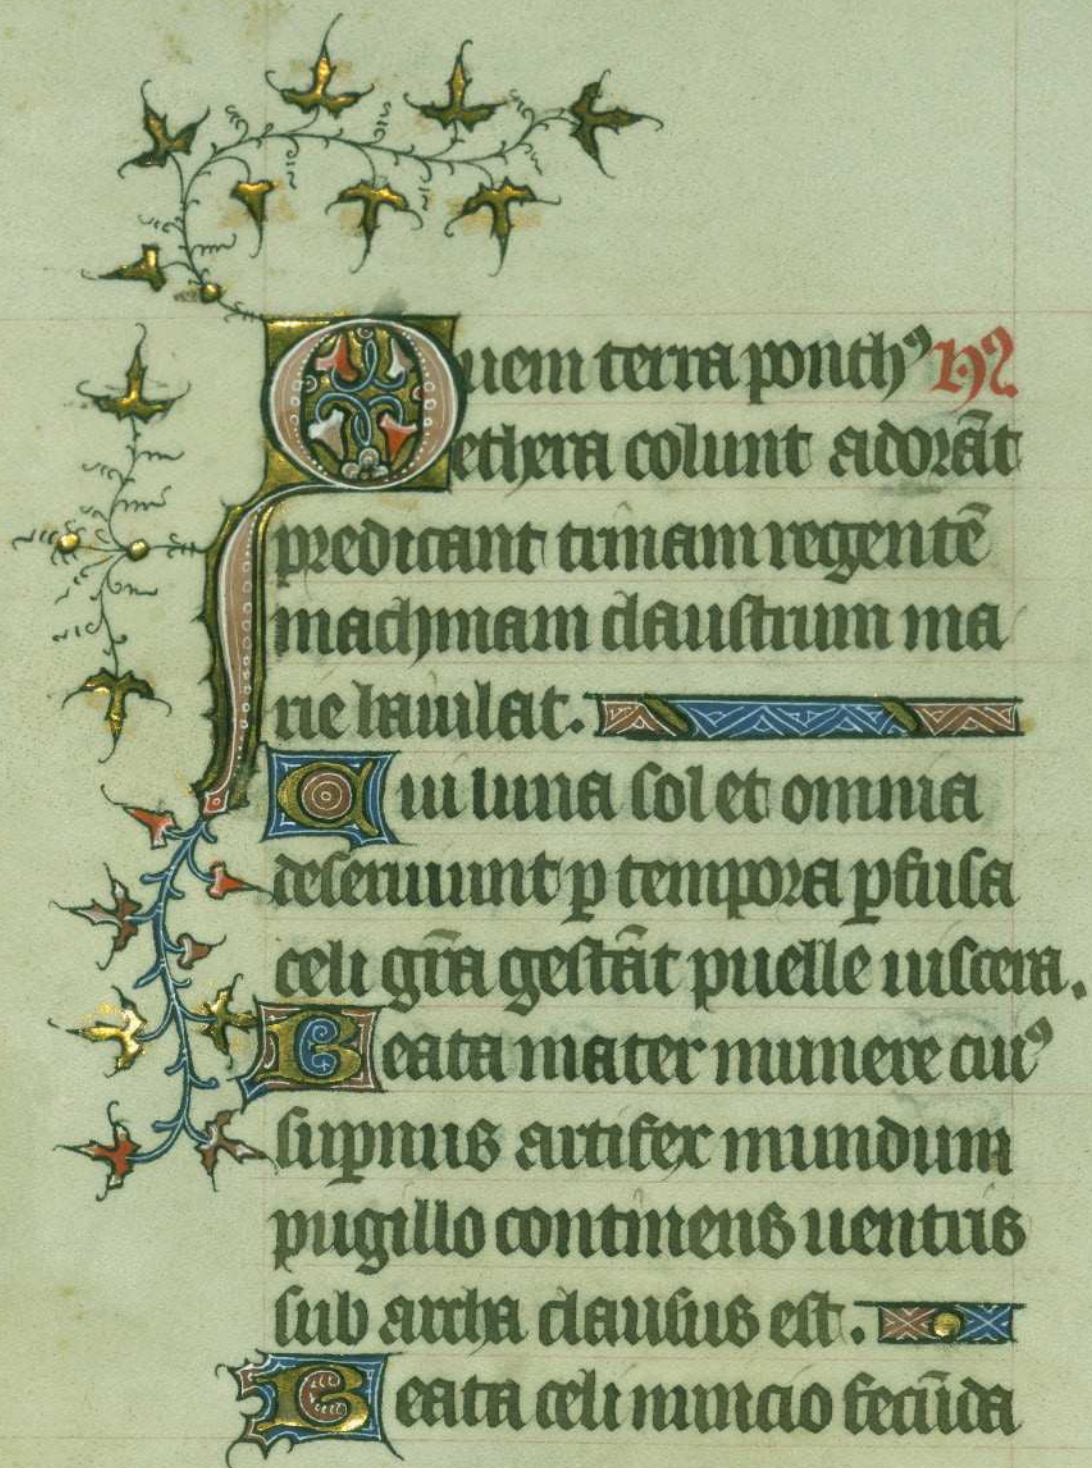 Quem terra ponthꝰ hỹ
ethera colunt adorãt
predicant trinam regentẽ
machinam claustrum ma
rie baiulat.
Cui luna sol et omnia
deseruiunt ꝑ tempora ꝑfusa
celi gr̃a gestãt puelle uiscera.
Beata mater munere cuiꝰ
suꝑnus artifex mundum
pugillo continens uentris
sub archa clausus est.
Beata celi nuncio fecũda